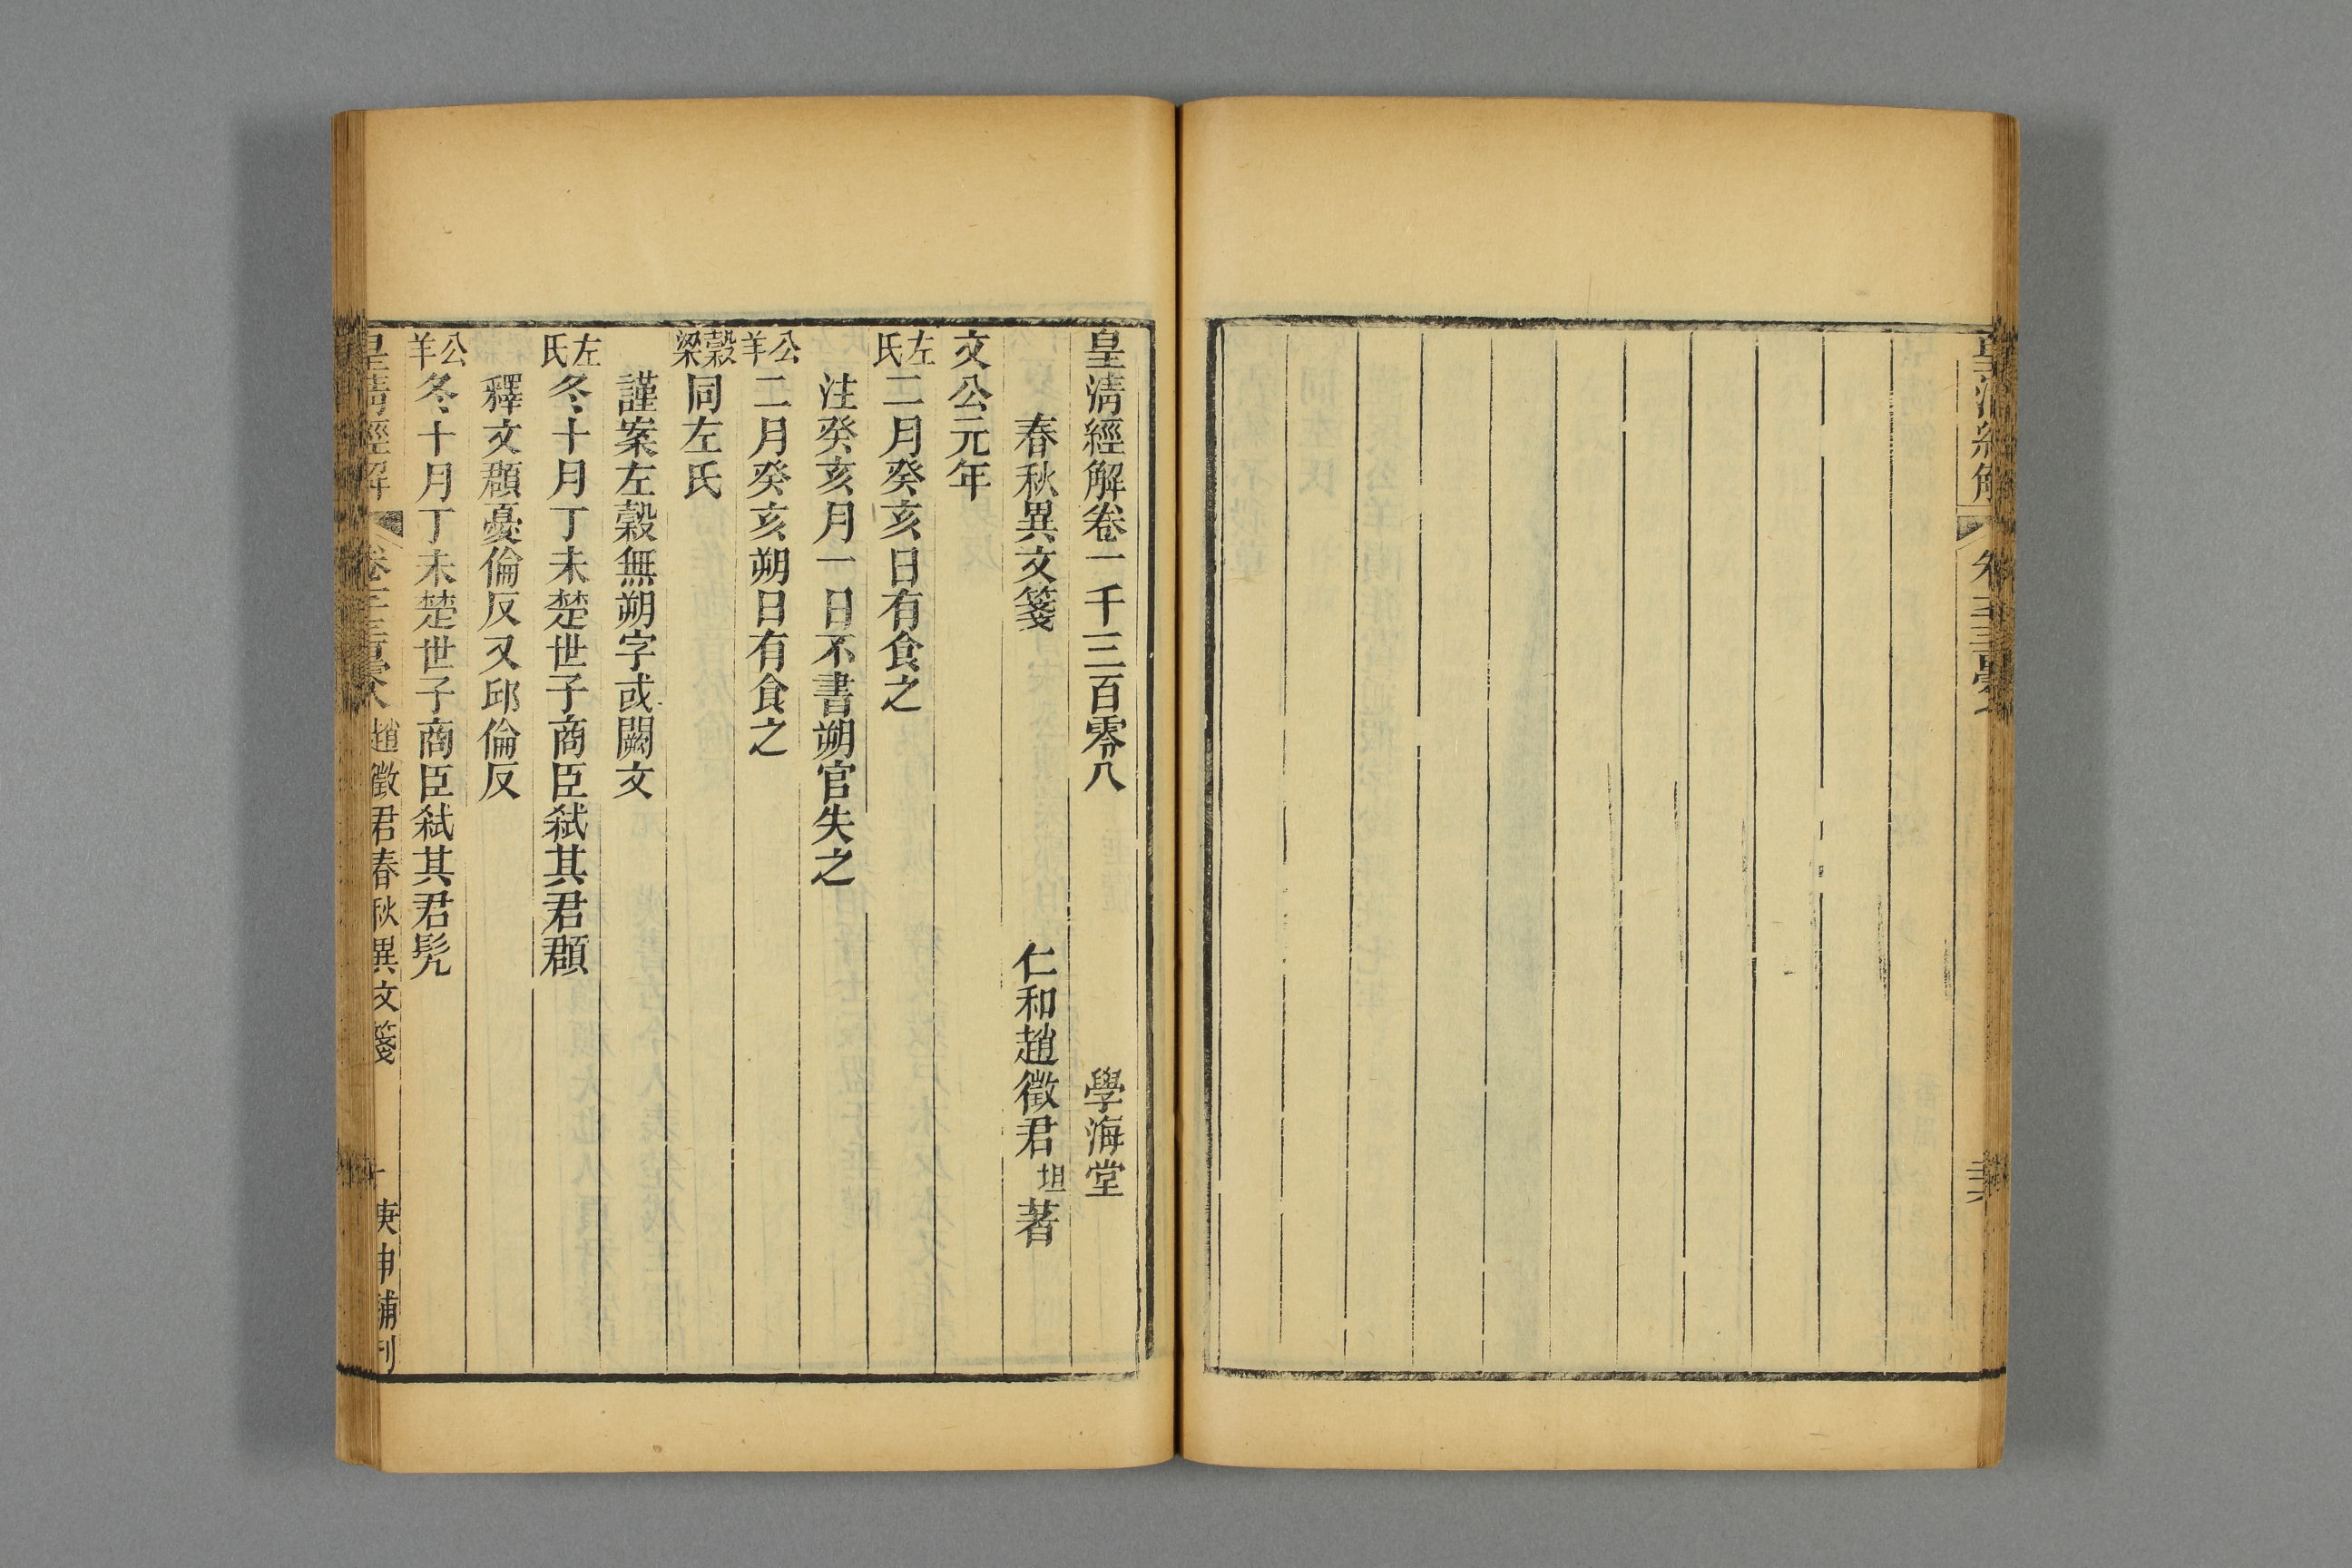 皇清經解
皇清經解卷一千三百零八 學海堂
春秋異文箋 仁和趙徵君坦著
文公元年
左氏二月癸亥日有食之
注癸亥月一日不書朔官失之
公羊二月癸亥朔日有食之
穀梁同左氏
謹案左穀無朔字或闕文
左氏冬十月丁未楚世子商臣弑其君頵
釋文頵憂倫反又邱倫反
公羊冬十月丁未楚世子商臣弑其君髡
皇清經解 卷千三百零八 趙徵君春秋異文箋 一 庚申補刊